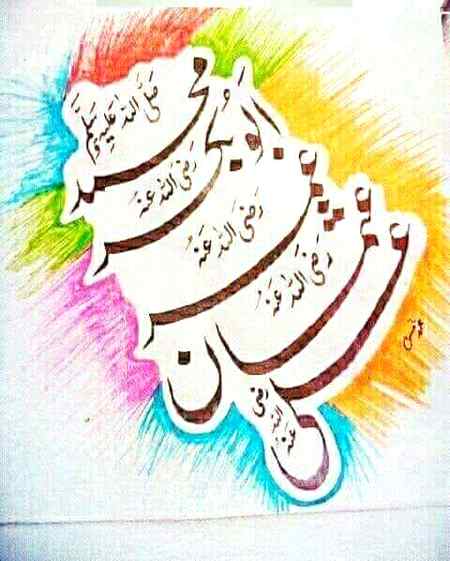 محمد
صَلَّى اللهُ عَلَيْهِ وَسَلَّم
ابوبکر
رَضِیَ اللهُ عَنْهُ
عمر
رَضِیَ اللهُ عَنْهُ
عثمان
رَضِیَ اللهُ عَنْهُ
علی
رَضِیَ اللهُ عَنْهُ